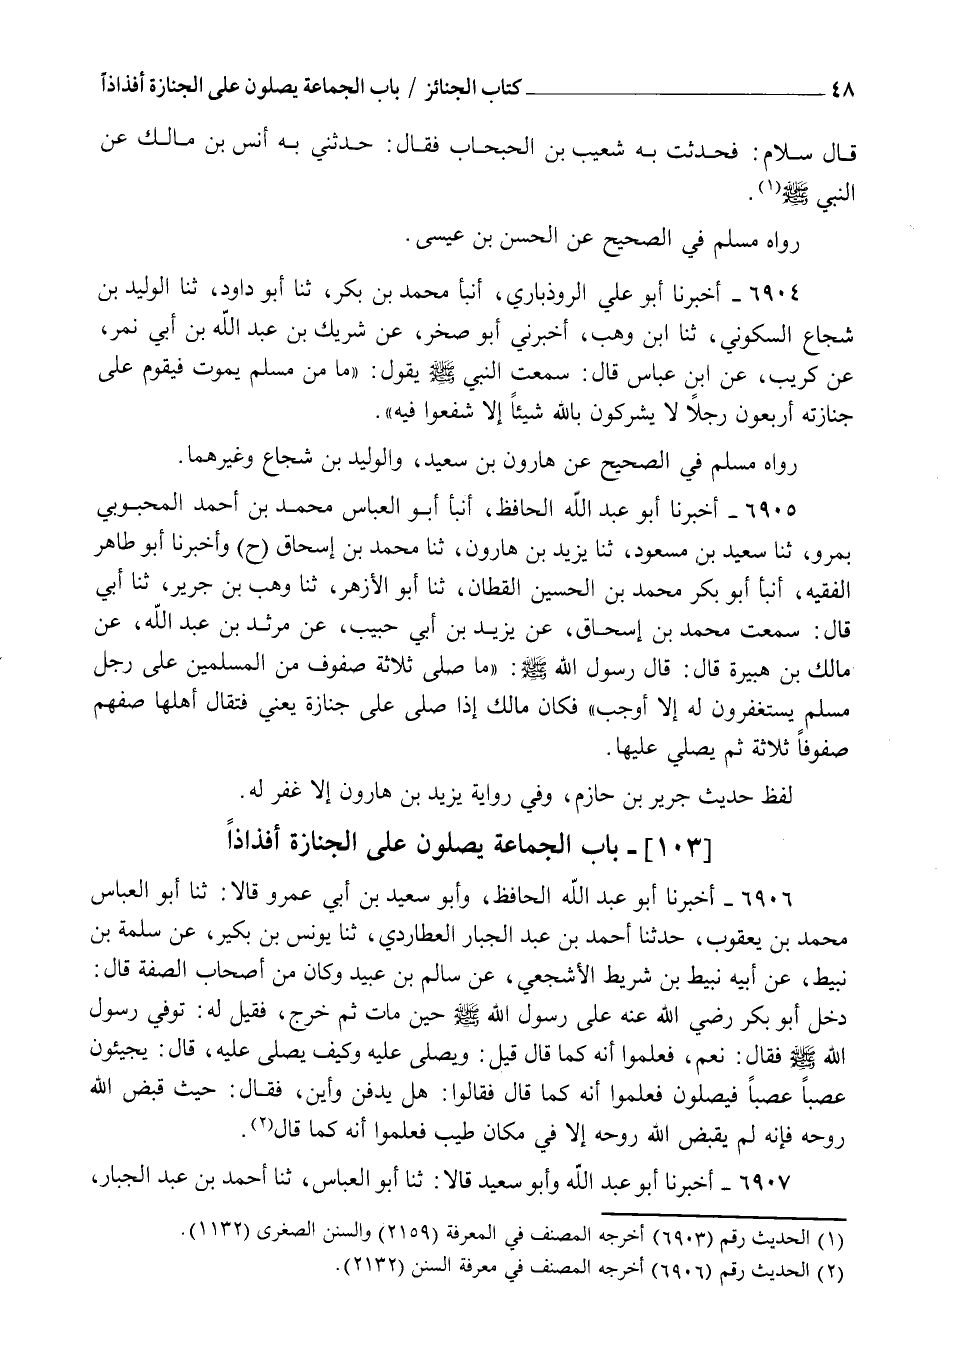 ٤٨ ــــــــــ كتاب الجنائز / باب الجماعة يصلون على الجنازة أفذاذاً
قال سلام: فحدثت به شعيب بن الحبحاب فقال: حدثني به أنس بن مالك عن
النبي ﷺ(١).
رواه مسلم في الصحيح عن الحسن بن عيسى.
٦٩٠٤ ـ أخبرنا أبو علي الروذباري، أنبأ محمد بن بكر، ثنا أبو داود، ثنا الوليد بن
شجاع السكوني، ثنا ابن وهب، أخبرني أبو صخر، عن شريك بن عبد الله بن أبي نمر،
عن كريب، عن ابن عباس قال: سمعت النبي ﷺ يقول: «ما من مسلم يموت فيقوم على
جنازته أربعون رجلاً لا يشركون بالله شيئاً إلا شفعوا فيه».
رواه مسلم في الصحيح عن هارون بن سعيد، والوليد بن شجاع وغيرهما.
٦٩٠٥ ـ أخبرنا أبو عبد الله الحافظ، أنبأ أبو العباس محمد بن أحمد المحبوبي
بمرو، ثنا سعيد بن مسعود، ثنا يزيد بن هارون، ثنا محمد بن إسحاق (ح) وأخبرنا أبو طاهر
الفقيه، أنبأ أبو بكر محمد بن الحسين القطان، ثنا أبو الأزهر، ثنا وهب بن جرير، ثنا أبي
قال: سمعت محمد بن إسحاق، عن يزيد بن أبي حبيب، عن مرثد بن عبد الله، عن
مالك بن هبيرة قال: قال رسول الله ﷺ: «ما صلى ثلاثة صفوف من المسلمين على رجل
مسلم يستغفرون له إلا أوجب» فكان مالك إذا صلى على جنازة يعني فتقال أهلها صفهم
صفوفاً ثلاثة ثم يصلي عليها.
لفظ حديث جرير بن حازم، وفي رواية يزيد بن هارون إلا غفر له.
[١٠٣] ـ باب الجماعة يصلون على الجنازة أفذاذاً
٦٩٠٦ ـ أخبرنا أبو عبد الله الحافظ، وأبو سعيد بن أبي عمرو قالا: ثنا أبو العباس
محمد بن يعقوب، حدثنا أحمد بن عبد الجبار العطاردي، ثنا يونس بن بكير، عن سلمة بن
نبيط، عن أبيه نبيط بن شريط الأشجعي، عن سالم بن عبيد وكان من أصحاب الصفة قال:
دخل أبو بكر رضي الله عنه على رسول الله ﷺ حين مات ثم خرج، فقيل له: توفي رسول
الله ﷺ فقال: نعم، فعلموا أنه كما قال قيل: ويصلى عليه وكيف يصلى عليه، قال: يجيئون
عصباً عصباً فيصلون فعلموا أنه كما قال فقالوا: هل يدفن وأين، فقال: حيث قبض الله
روحه فإنه لم يقبض الله روحه إلا في مكان طيب فعلموا أنه كما قال(٢).
٦٩٠٧ ـ أخبرنا أبو عبد الله وأبو سعيد قالا: ثنا أبو العباس، ثنا أحمد بن عبد الجبار،
(١) الحديث رقم (٦٩٠٣) أخرجه المصنف في المعرفة (٢١٥٩) والسنن الصغرى (١١٣٢).
(٢) الحديث رقم (٦٩٠٦) أخرجه المصنف في معرفة السنن (٢١٣٢).